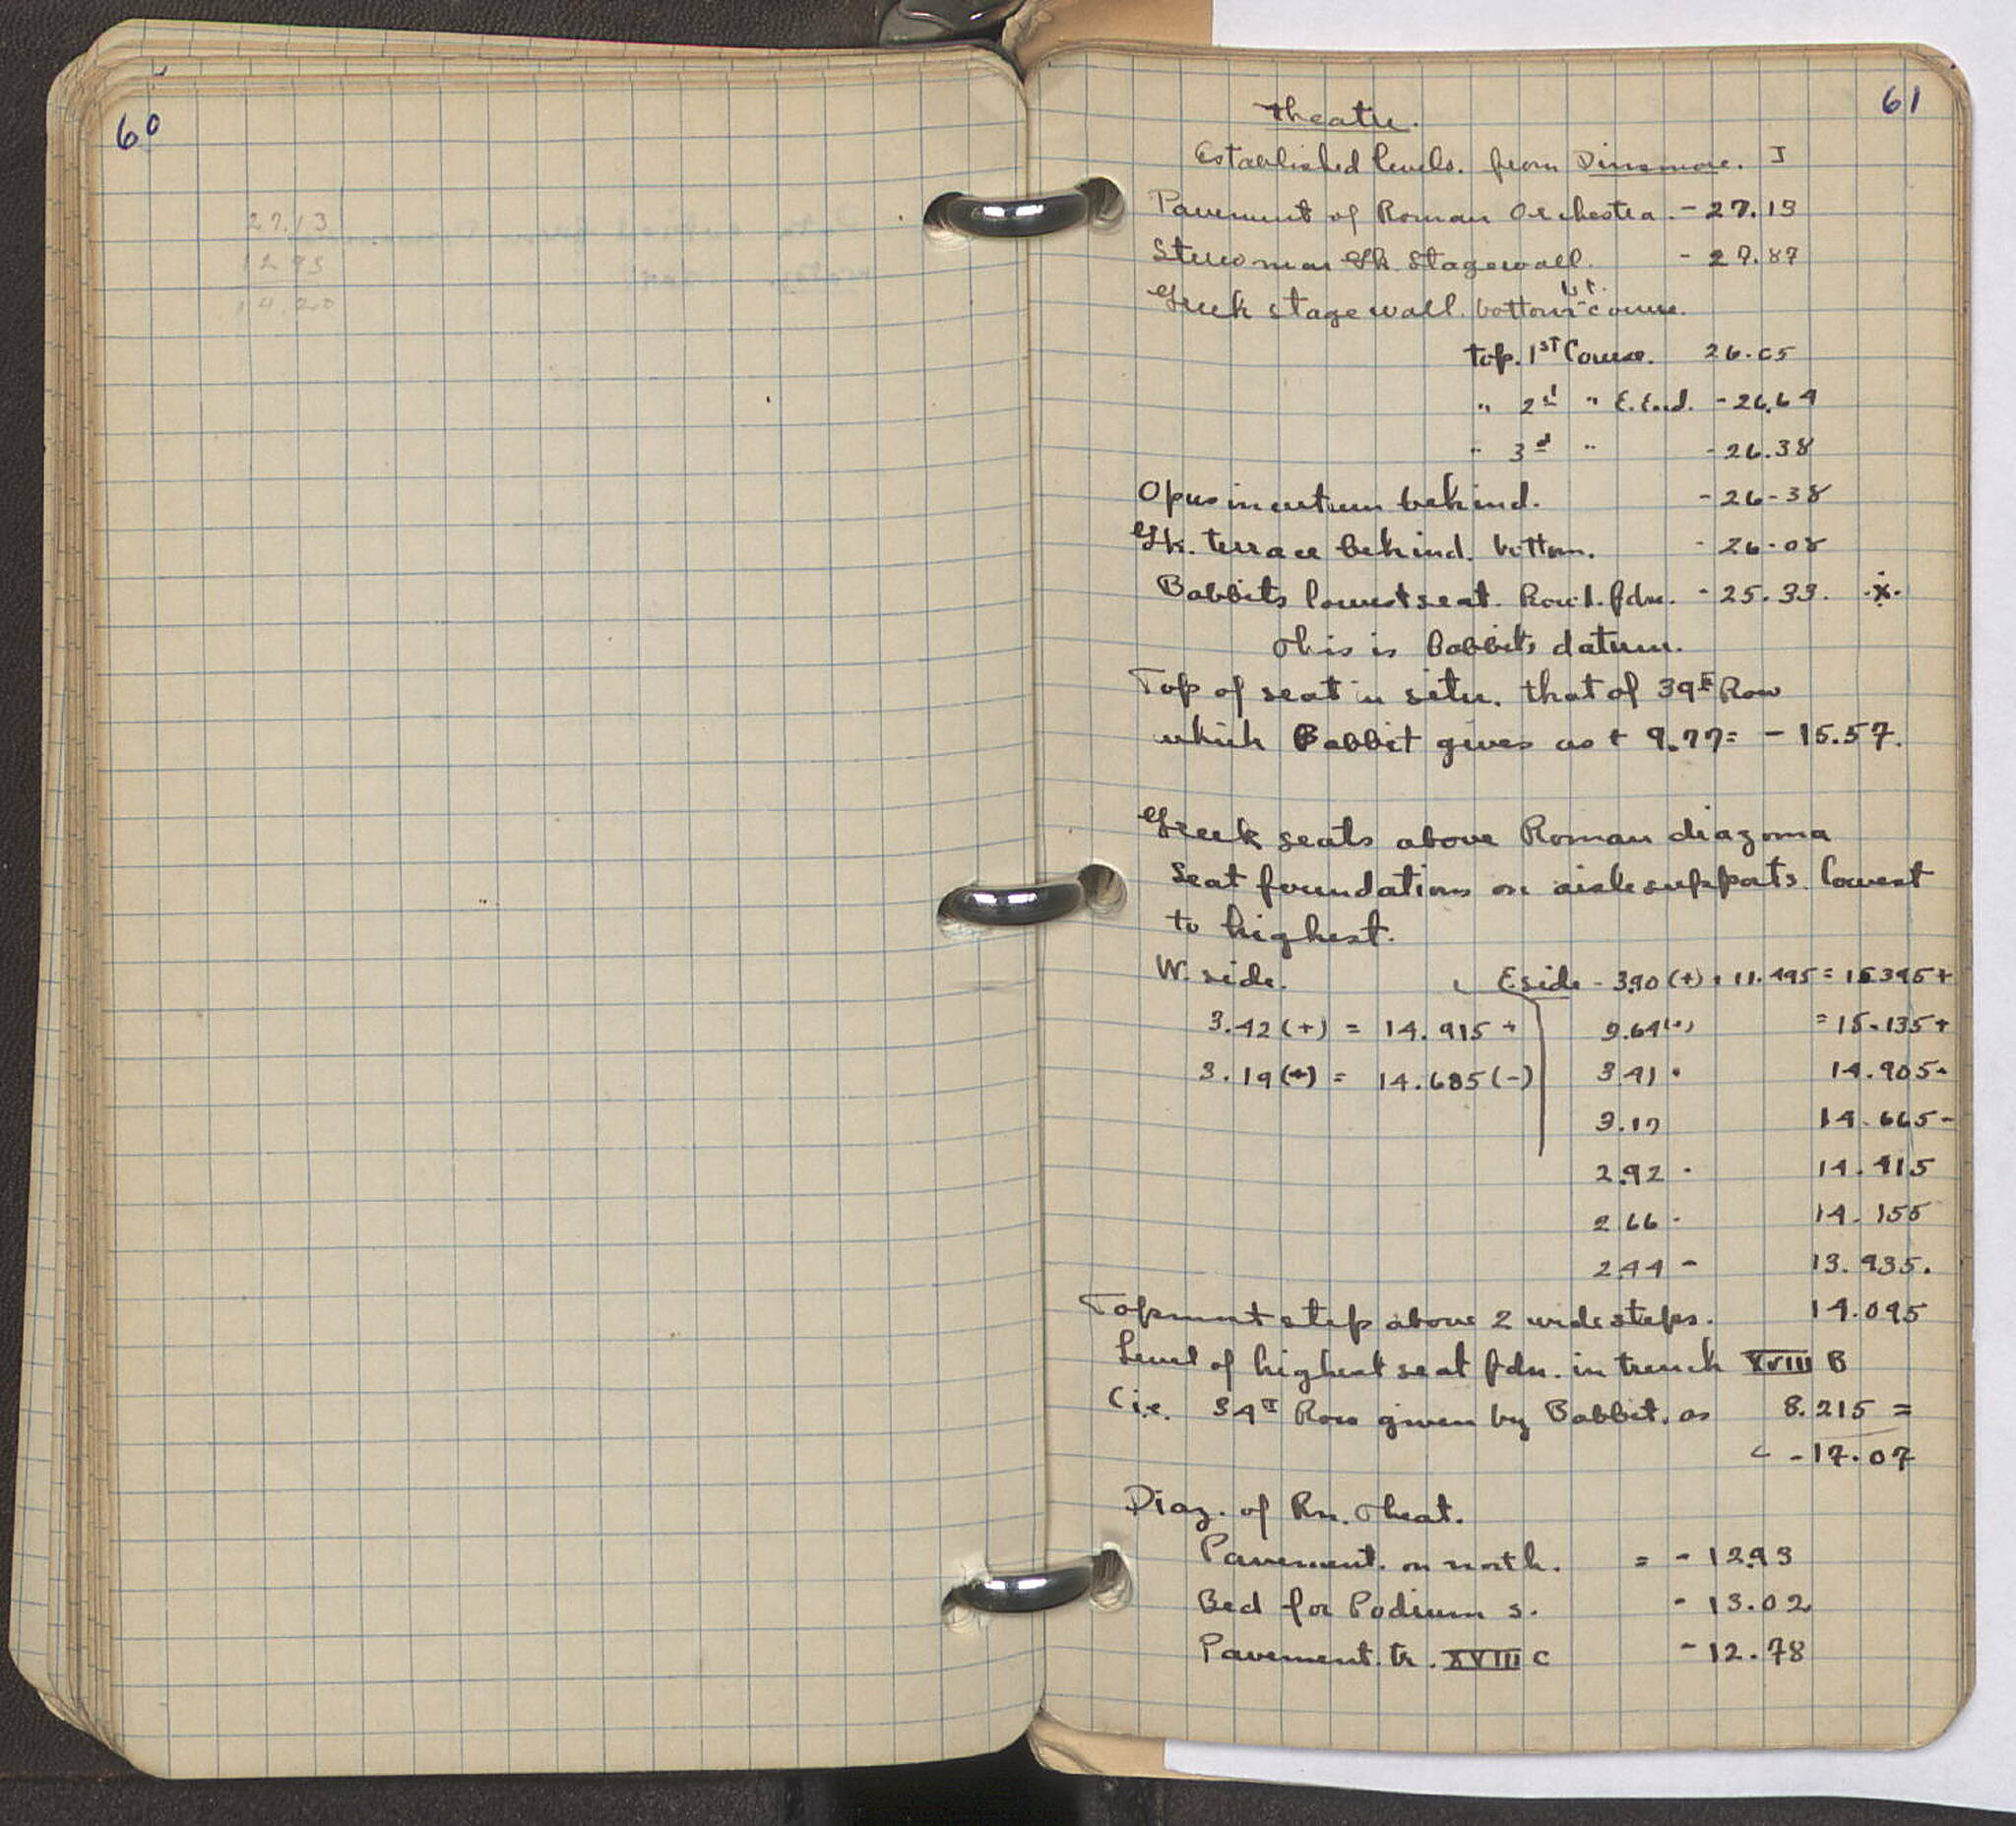 60
27.13
12.93
14.20
61
Theatre.
Established levels. from Dinsmoor. I
Pavement of Roman Orchestra. - 27.13
Stereo near Gk. Stagewall. - 27.87
Greek stage wall. bottom 1st course.
top. 1ST Course. 26.05
" 2d " E. End. - 26.64
" 3d " - 26.38
Opus incertum behind. - 26-38
Gk. terrace behind. bottom. - 26-08
Babbits lowest seat. Row 1. fdn. - 25.33.
This is Babbits datum.
Top of seat in situ. that of 39th Row
which Babbit gives as + 9.77 = - 15.57.
Greek seats above Roman diazoma
Seat foundations or aisle supports. lowest
to highest.
W. side. E side - 3.90 (+) + 11.495 = 15.395 +
3.42 (+) = 14.915 + 3.64 (+) = 15.135 +
3.19 (+) = 14.685 (-) 3.41 14.905
3.17 14.665 -
2.92 14.415
2.66 14.155
2.44 - 13.935.
Topmost step above 2 wide steps. 14.095
Level of highest seat fdn. in trench XVIII B
(i.e. 34th Row given by Babbit. as 8.215 =
- 17.07
Diaz. of Rn. Theat.
Pavement. on north. = - 12.93
Bed for Podium s. - 13.02
Pavement. tr. XVIII C - 12.78